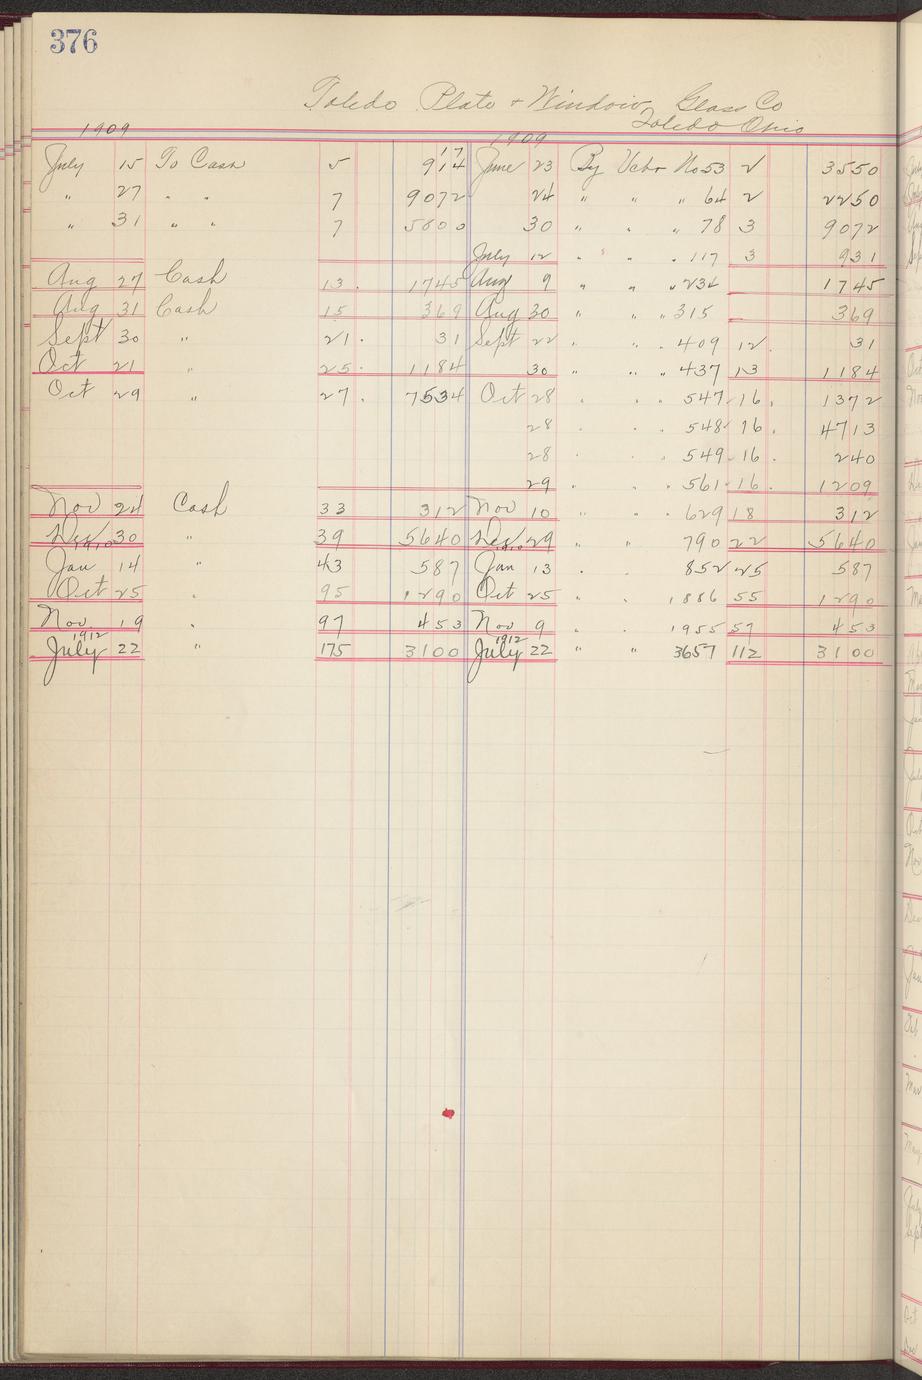 376
Toledo Plate + Window Glass Co
Toledo Ohio
1909 1909
July 15 To Cash 5 914 17 June 23 By Vchr No 53 2 3550
" 27 " " 7 9072 24 " " " 64 2 2250
" 31 " " 7 5800 30 " " " 78 3 9072
July 12 " " " 117 3 931
Aug 27 Cash 13 1745 Aug 9 " " " 234 1745
Aug 31 Cash 15 369 Aug 30 " " " 315 369
Sept 30 " 21 31 Sept 22 " " 409 12 31
Oct 21 " 25 1184 30 " " " 437 13 1184
Oct 29 " 27 7534 Oct 28 " " " 547 16 1372
28 " " " 548 16 4713
28 " " " 549 16 240
29 " " " 561 16 1209
Nov 24 Cash 33 312 Nov 10 " " " 629 18 312
Dec 30 " 39 5640 Dec 29 " " 790 22 5640
1910 1910
Jan 14 " 43 587 Jan 13 " " 852 25 587
Oct 25 " 95 1290 Oct 25 " " 1886 55 1290
Nov 19 " 97 453 Nov 9 " " 1955 57 453
1912 1912
July 22 " 175 3100 July 22 " " 3657 112 3100